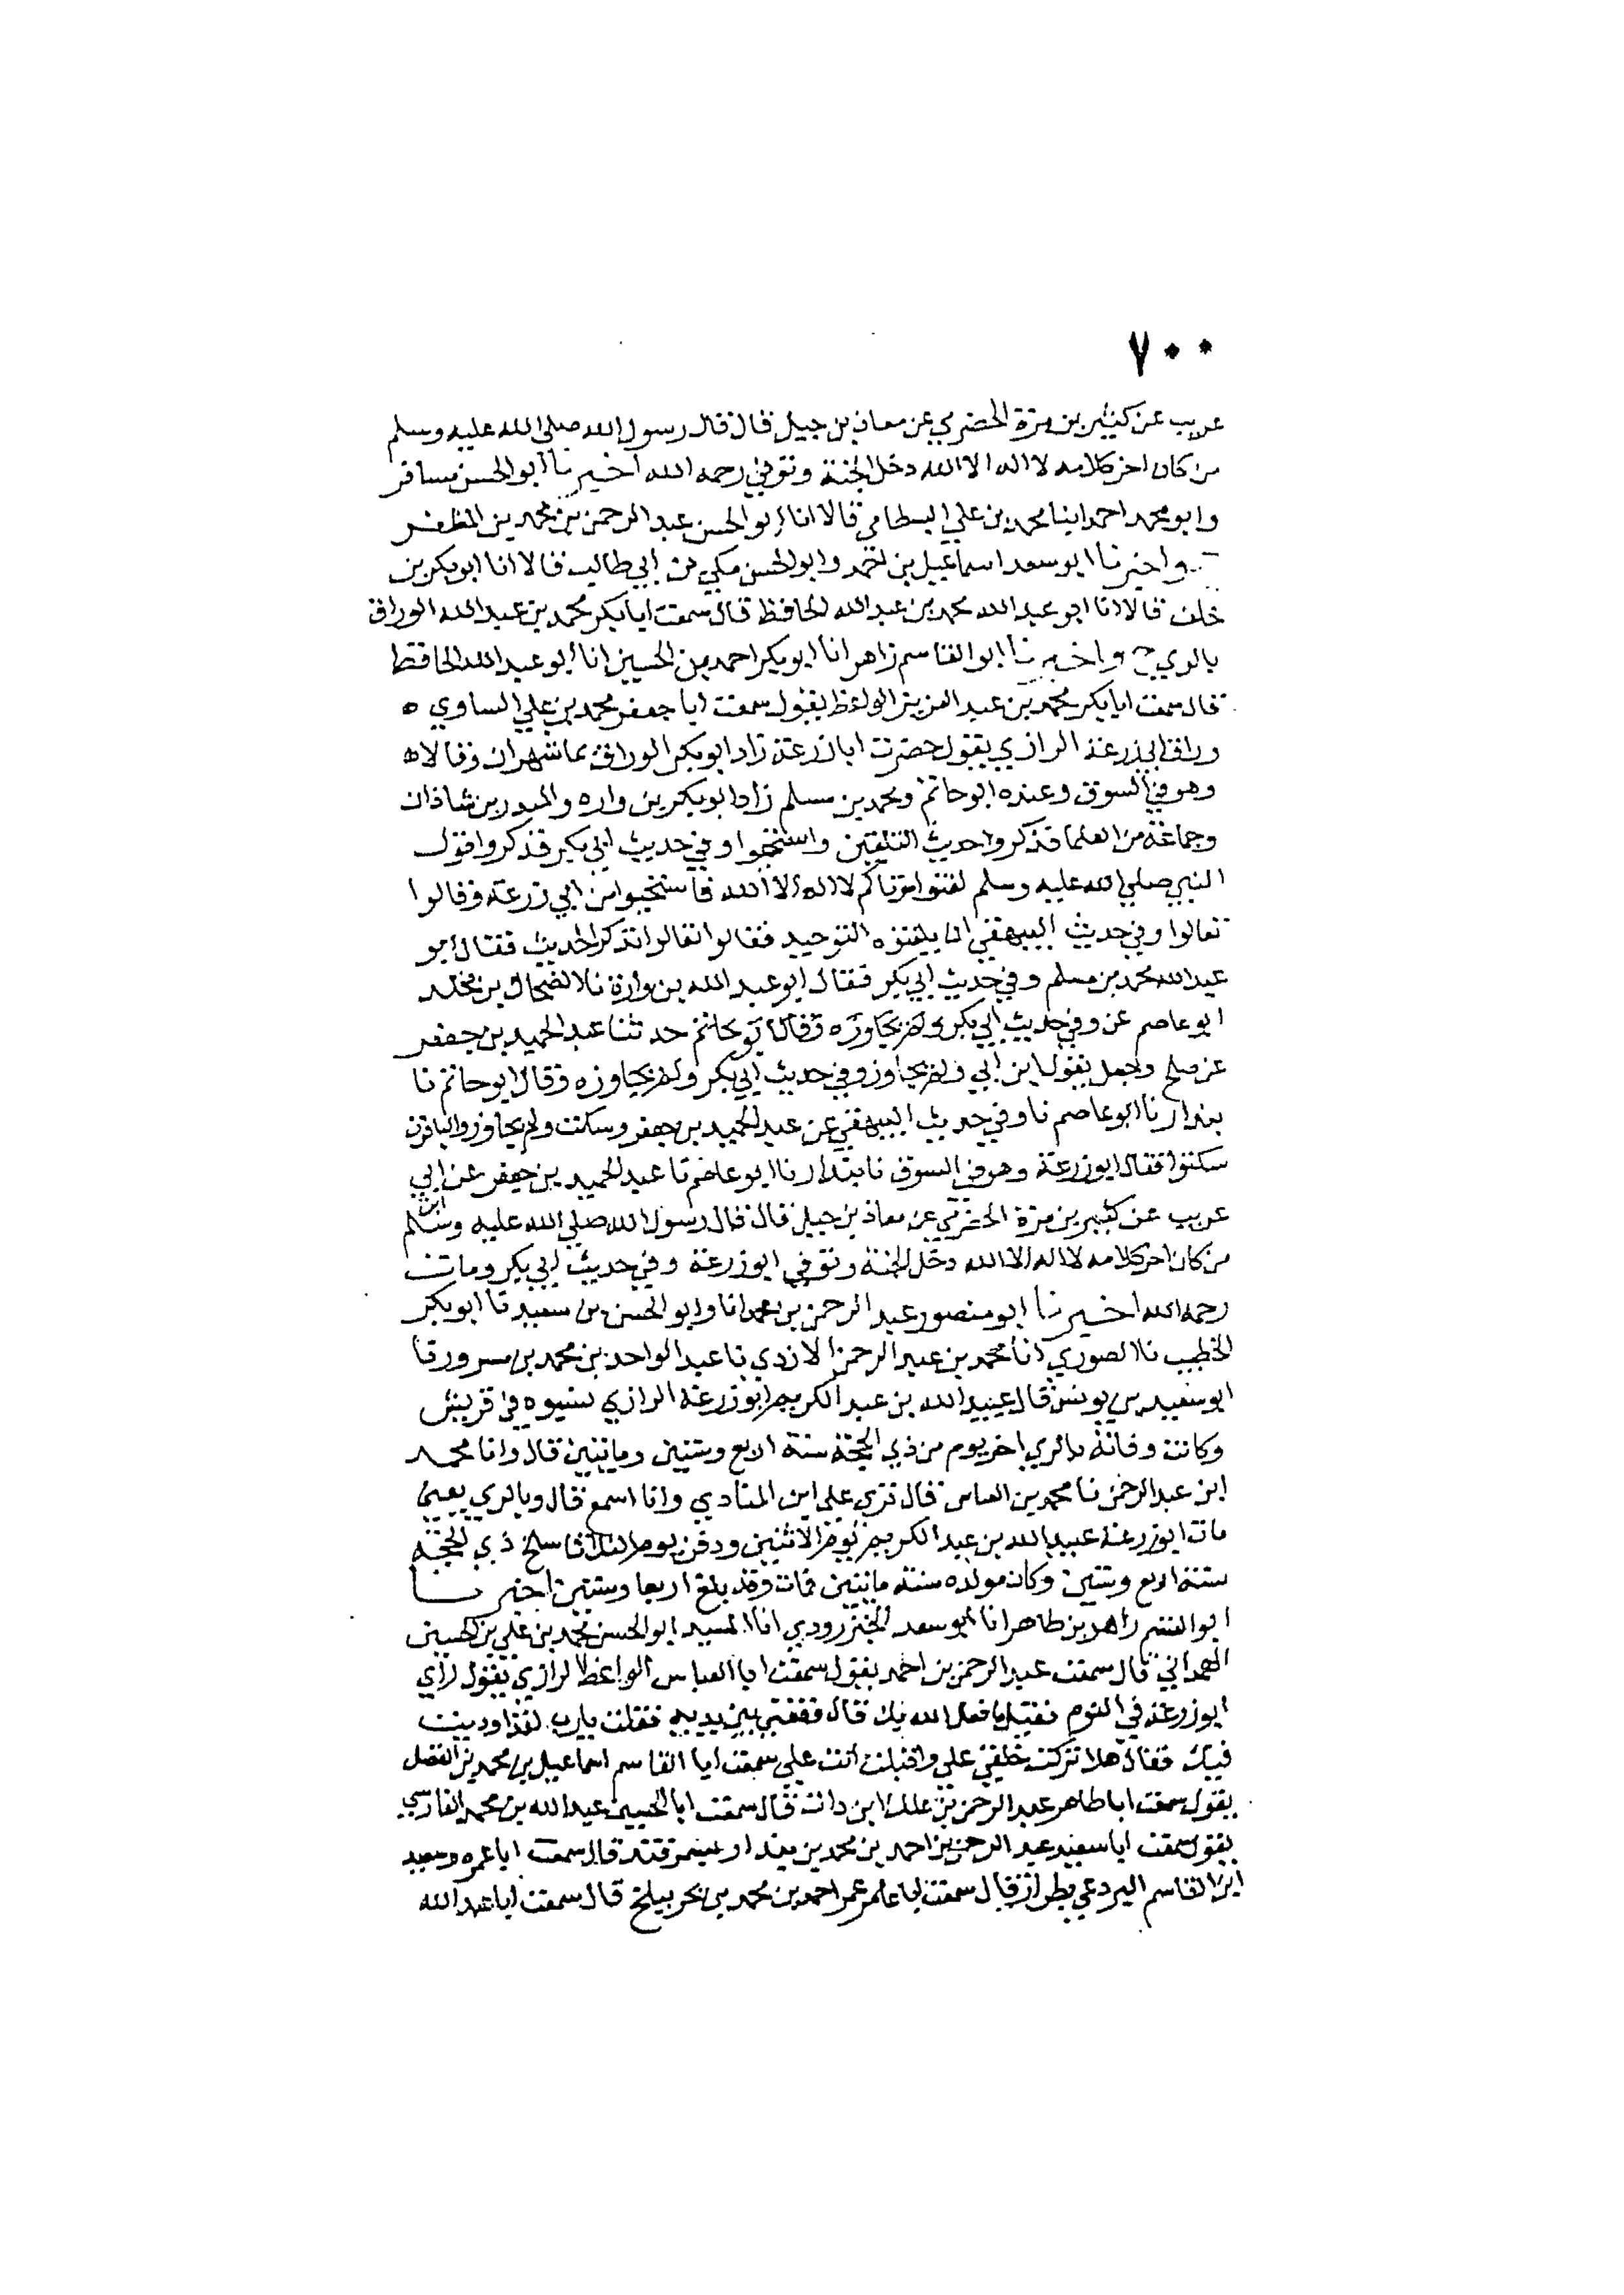 ٧٠٠
عريب عن كثير بن مرة الحضرمي عن معاذ بن جبل قال قال رسول الله صلى الله عليه وسلم
من كان اخر كلامه لا اله الا الله دخل الجنة وتوفي رحمه الله اخبرنا ابو الحسن مسافر
وابو محمد احمد ابنا محمد بن علي البسطامي قالا انا ابو الحسن عبد الرحمن بن محمد بن المظفر
واخبرنا ابو سعد اسماعيل بن احمد وابو الحسن مكي بن ابي طالب قالا انا ابو بكر بن
خلف قالا انا ابو عبد الله محمد بن عبد الله الحافظ قال سمعت ابا بكر محمد بن عبد الله الوراق
بالري ح واخبرنا ابو القاسم زاهر انا ابو بكر احمد بن الحسين انا ابو عبد الله الحافظ
قال سمعت ابا بكر محمد بن عبد العزيز الواعظ يقول سمعت ابا جعفر محمد بن علي الساوي ه
وراق ابي زرعة الرازي يقول حضرت ابا زرعة زاد ابو بكر الوراق بماشهران وقالا ه
وهو في السوق وعنده ابو حاتم ومحمد بن مسلم زاد ابو بكر بن واره والمنذر بن شاذان
وجماعة من العلما فذكروا حديث التلقين واستحيوا وفي حديث ابي بكر فذكروا قول
النبي صلى الله عليه وسلم لقنوا موتاكم لا اله الا الله فاستحيوا من ابي زرعة وقالوا
تعالوا وفي حديث البيهقي ان يلقنوه التوحيد فقالوا تعالوا نذكر الحديث فقال ابو
عبد الله محمد بن مسلم وفي حديث ابي بكر فقال ابو عبد الله بن وارة نا الضحاك بن مخلد
ابو عاصم عن وفي حديث ابي بكر ولم يجاوزه وقال ابو حاتم حدثنا عبد الحميد بن جعفر
عن صلح وجعل يقول ابن ابي ولم يجاوز وفي حديث ابي بكر ولم يجاوزه وقال ابو حاتم نا
بندار نا ابو عاصم نا وفي حديث البيهقي عن عبد الحميد بن جعفر وسكت ولم يجاوز والباقون
سكتوا فقال ابو زرعة وهو في السوق نا بندار نا ابو عاصم نا عبد الحميد بن جعفر عن ابي
عريب عن كثير بن مرة الحضرمي عن معاذ بن جبل قال قال رسول الله صلى الله عليه وسلم
من كان اخر كلامه لا اله الا الله دخل الجنة وتوفي ابو زرعة وفي حديث ابي بكر ومات
رحمه الله اخبرنا ابو منصور عبد الرحمن بن محمد انا وابو الحسن بن سعيد نا ابو بكر
الخطيب نا الصوري انا محمد بن عبد الرحمن الازدي نا عبد الواحد بن محمد بن مسرور نا
ابو سعيد بن يونس قال عبيد الله بن عبد الكريم ابو زرعة الرازي نسبوه في قريش
وكانت وفاته بالري اخر يوم من ذي الحجة سنة اربع وستين ومائتين قال وانا محمد
ابن عبد الرحمن نا محمد بن العباس قال قري على ابن المنادي وانا اسمع قال وبالري يعني
مات ابو زرعة عبيد الله بن عبد الكريم يوم الاثنين ودفن يوم الثلاثا سلخ ذي الحجة
سنة اربع وستين وكان مولده سنة مائتين فمات وقد بلغ اربعا وستين اخبرنا
ابو القسم زاهر بن طاهر انا ابو سعد الجنزرودي انا السيد ابو الحسن محمد بن علي بن الحسين
الهمداني قال سمعت عبد الرحمن بن احمد يقول سمعت ابا العباس الواعظ الرازي يقول رأي
ابو زرعة في النوم فقيل ما فعل الله بك قال وقفني بين يديه فقلت يارب لقد اوديت
فيك فقال هلا تركت خلقي علي واقبلت انت علي سمعت ابا القاسم اسماعيل بن محمد بن الفضل
يقول سمعت ابا طاهر عبد الرحمن بن علك ابن دات قال سمعت ابا الحسين عبد الله بن محمد الفارسي
يقول سمعت ابا سعيد عبد الرحمن بن احمد بن محمد بن بندار بسمرقند قال سمعت ابا عمرو سعيد
ابن القاسم البردعي بطراز قال سمعت ابا عامر عمر احمد بن محمد بن بحر ببلخ قال سمعت ابا عبد الله